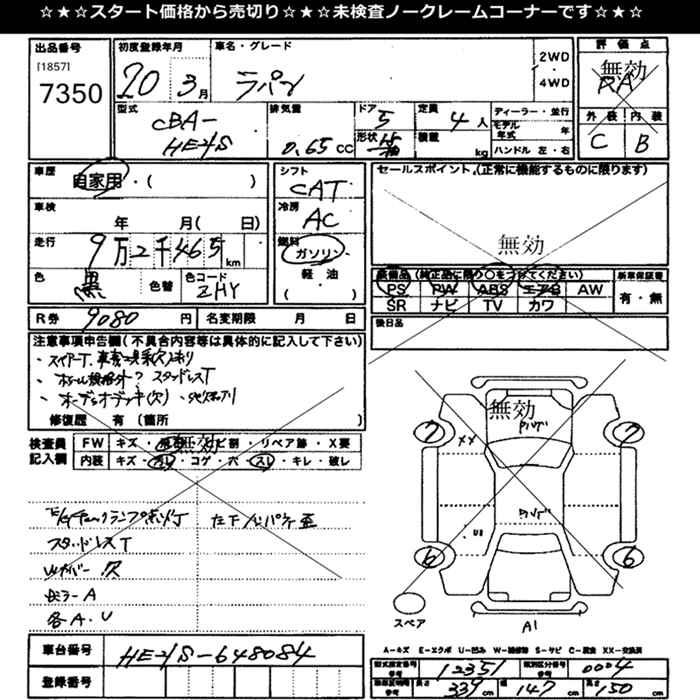 ☆★☆★スタート価格から売切り☆★☆★未検査ノークレームコーナーです☆★☆
出品番号
[1857]
7350
初度登録年月
20 3月
車名・グレード
ラパン
2WD
・
4WD
評価点
無効
RA
外装 内装
C B
型式
CBA-
HE21S
排気量
0.65 CC
ドア
5
形状
定員
4人
積載
kg
ディーラー・並行
モデル年式 年
ハンドル 左・右
車歴
自家用・( )
車検
年 月( 日)
走行
9万2千465km
色
黒
色替
色コード
ZHY
シフト
CAT
冷房
AC
燃料
ガソリン
軽・油
( )
セールスポイント (正常に機能するものに限ります)
無効
装備品 (純正品に限り○をつけてください)
PS PW ABS エアB AW
SR ナビ TV カワ
新車保証書
有・無
R券 9080 円
名変期限 月 日
後日品
注意事項申告欄(不具合内容等は具体的に記入して下さい)
・スペアT、車載工具(欠)有り
・ホイル規格外? スタッドレスT
・オーディオデッキ(欠)
修復歴 有 (箇所
検査員
記入欄
FW キズ・
無効
ビ割・リペア跡・X要
内装 キズ・ ・コゲ・穴・スレ・キレ・破レ
スタッドレスT
ミラーA
各A・U
無効
XX
U1
7
7
6
6
スペア
A1
A-キズ E-エクボ U-凹み W-補修跡 S-サビ C-腐食 XX-交換済
車台番号 HE21S-648084
登録番号
型式指定番号
参考
12351
類別区分番号
参考
0004
長さ 339 cm
幅 147 cm
高さ 150 cm